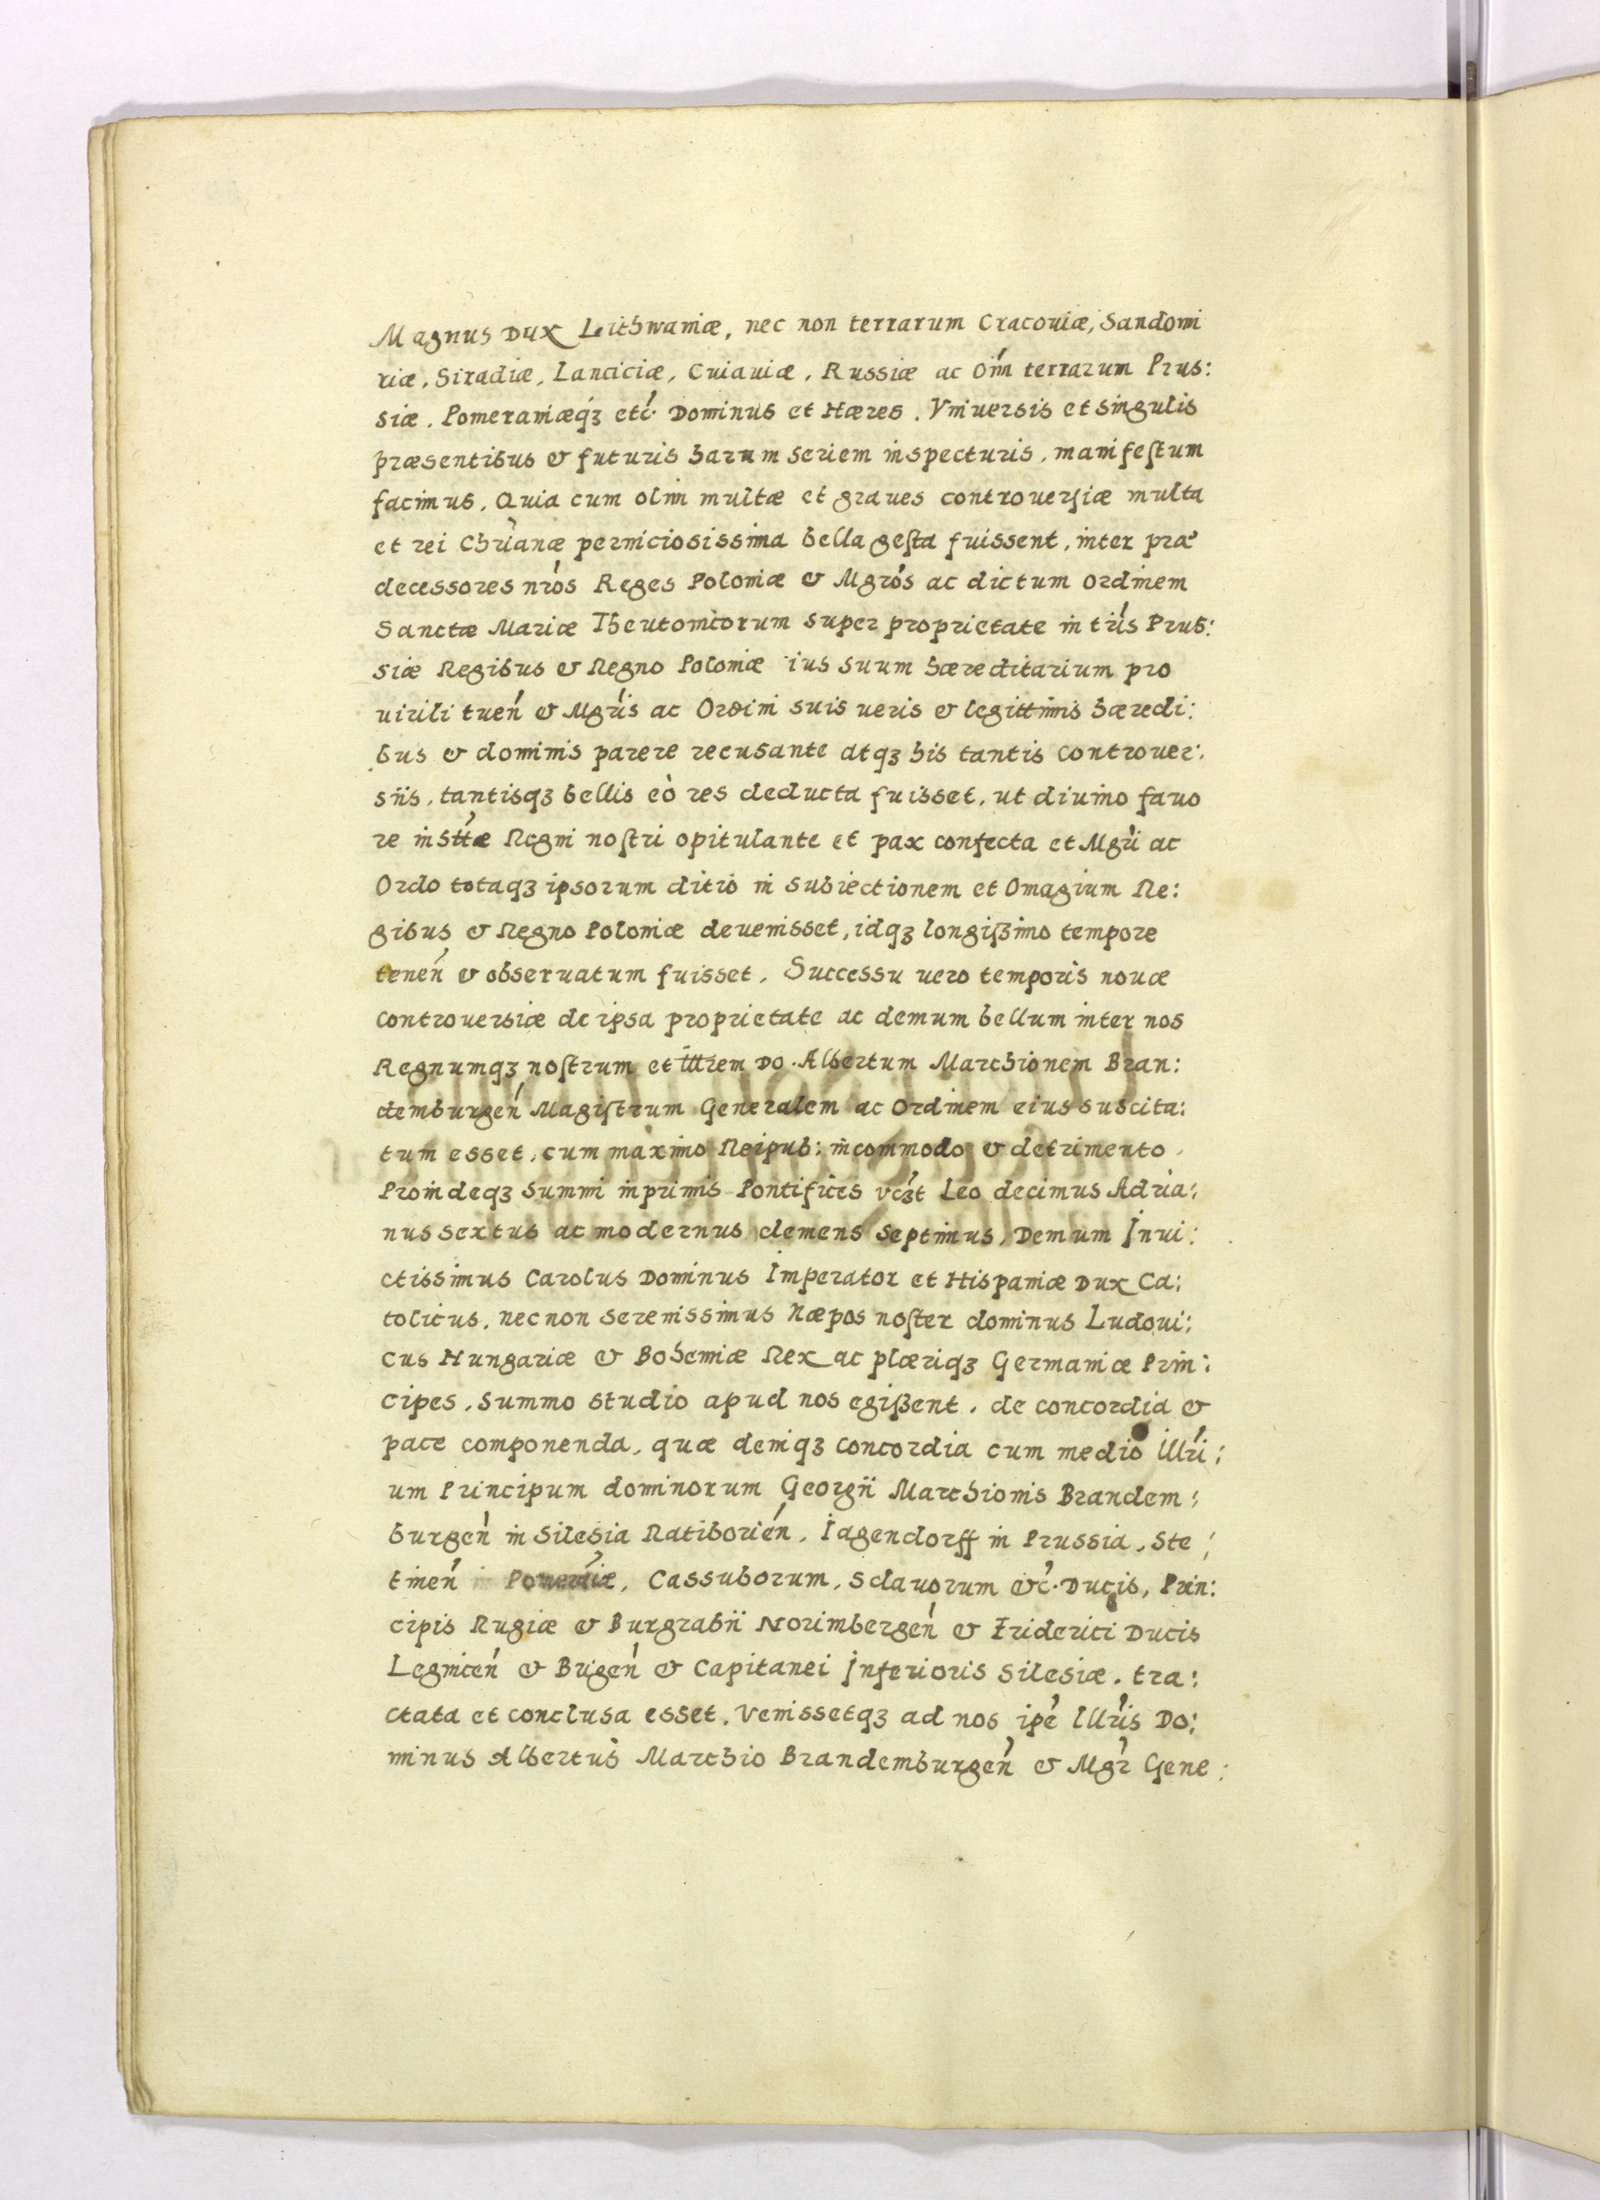 Magnus Dux Leithwaniæ, nec non terrarum Cracoviæ, Sandomi
riæ, Siradiæ, Lanciciæ, Cuiaviæ, Russiæ ac Om̃ terrarum Prus:
siæ, Pomeraniæq́ꝫ etć. Dominus et Hæres. Vniuersis et singulis
præsentibus & futuris harum seriem inspecturis, manifeſtum
facimus, Quia cum olim multæ et graues controuerſiæ multa
et rei Chrianæ perniciosissima bella geſta fuissent, inter præ
decessores nr̃os Reges Poloniæ & Mgr̃os ac dictum Ordinem
Sanctæ Mariæ Theutonicorum super proprietate in tr̃is Prus:
siæ Regibus & Regno Poloniæ ius suum hæreditarium pro
uirili tueń & Mgr̃is ac Ordini suis ueris & legittimis hæredi:
bus & dominis parere recusante atqꝫ his tantis controuer:
siis, tantisqꝫ bellis eò res deducta fuisset, ut diuino fauo
re in stt́æ Regni noſtri opitulante et pax confecta et Mgr̃i ac
Ordo totaqꝫ ipsorum ditio in subiectionem et Omagium Re:
gibus & Regno Poloniæ deuenisset, idqꝫ longißimo tempore
teneń & obseruatum fuisset, Successu uero temporis nouæ
controuersiæ de ipsa proprietate ac demum bellum inter nos
Regnumqꝫ noſtrum et Illrem Do. Albertum Marchionem Bran:
demburgeń Magiſtrum Generalem ac Ordinem eius suscita:
tum esset, cum maximo Reipub: incommodo & detrimento,
Proindeqꝫ Summi inprimis Pontifices vcꝫt Leo decimus Adria:
nus sextus ac modernus clemens septimus, Demum Inui:
ctissimus Carolus Dominus Imperator et Hispaniæ Dux Ca:
tolicus, nec non serenissimus Næpos noſter dominus Ludoui:
cus Hungariæ & Bohemiæ Rex ac plæriqꝫ Germaniæ Prin:
cipes, summo studio apud nos egißent, de concordia &
pace componenda, quæ deniqꝫ concordia cum medio Illri:
um Principum dominorum Georgii Marchionis Brandem:
burgeń in Silesia Ratiborień, Iagendorff in Prussia, Ste:
tineń Pomeraniæ, Cassuborum, Sclauorum &ć. Ducis, Prin:
cipis Rugiæ & Burgrabii Norimbergeń & Friderici Ducis
Legniceń & Brigeń & Capitanei Inferioris Silesiæ, tra:
ctata et conclusa esset, venissetqꝫ ad nos ipé Illr̃is Do:
minus Albertus Marchio Brandemburgeń & Mgr̃ Gene: